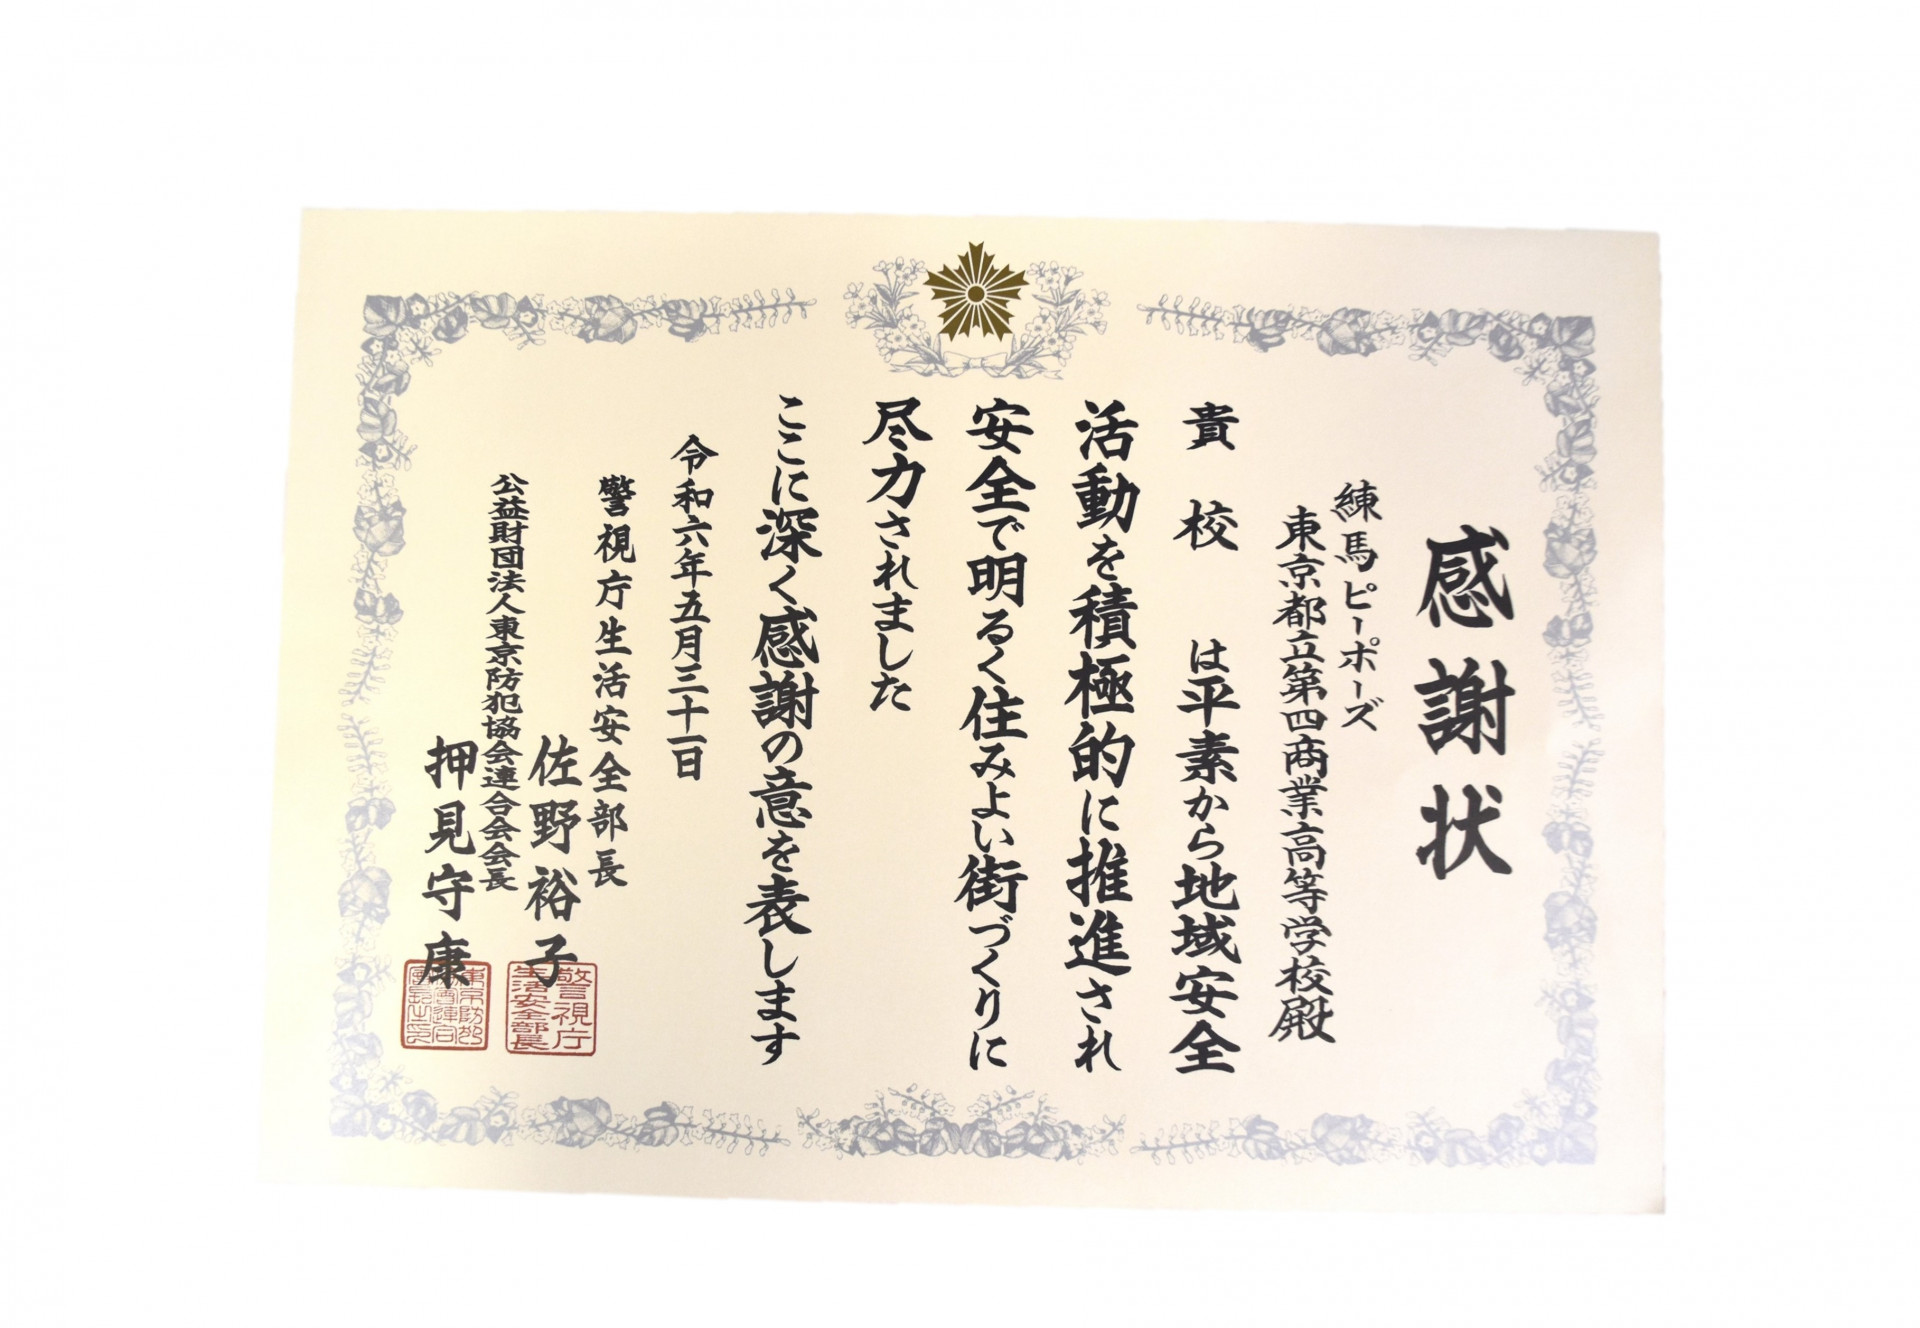 感謝状
練馬ピーポーズ
東京都立第四商業高等学校殿
貴校は平素から地域安全
活動を積極的に推進され
安全で明るく住みよい街づくりに
尽力されました
ここに深く感謝の意を表します
令和六年五月三十一日
警視庁生活安全部長
佐野裕子
公益財団法人東京防犯協会連合会会長
押見守康
警視庁
生活安全部長